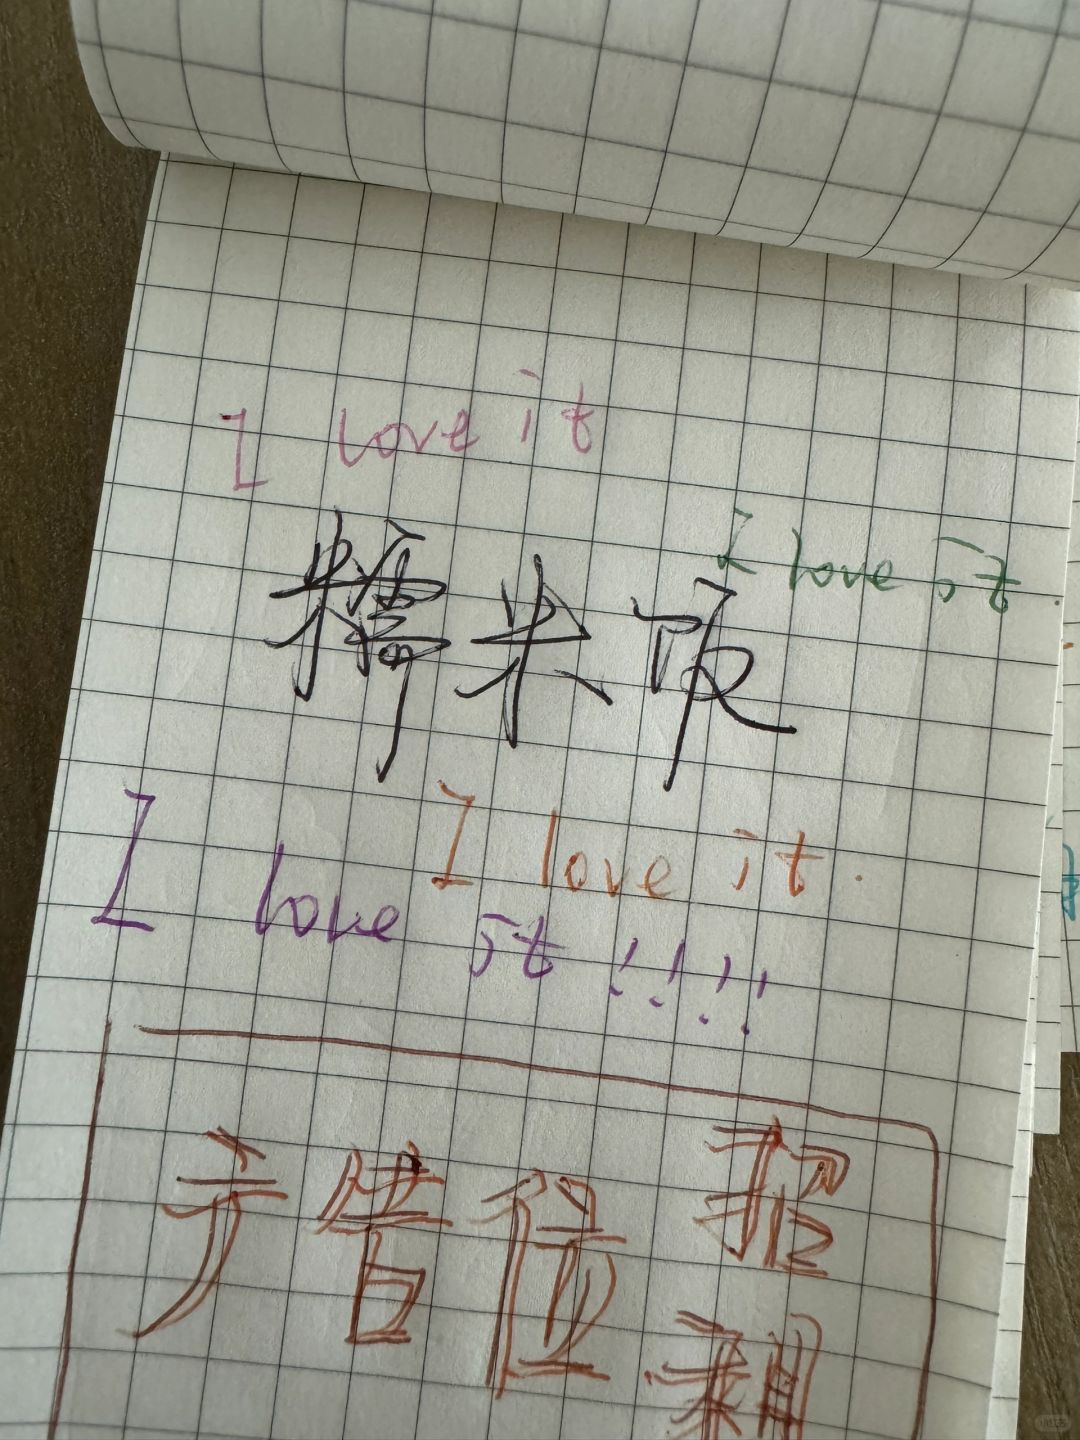 I love it
I love it
糯米饭
I love it.
I love it!!!!
广告位 招
租